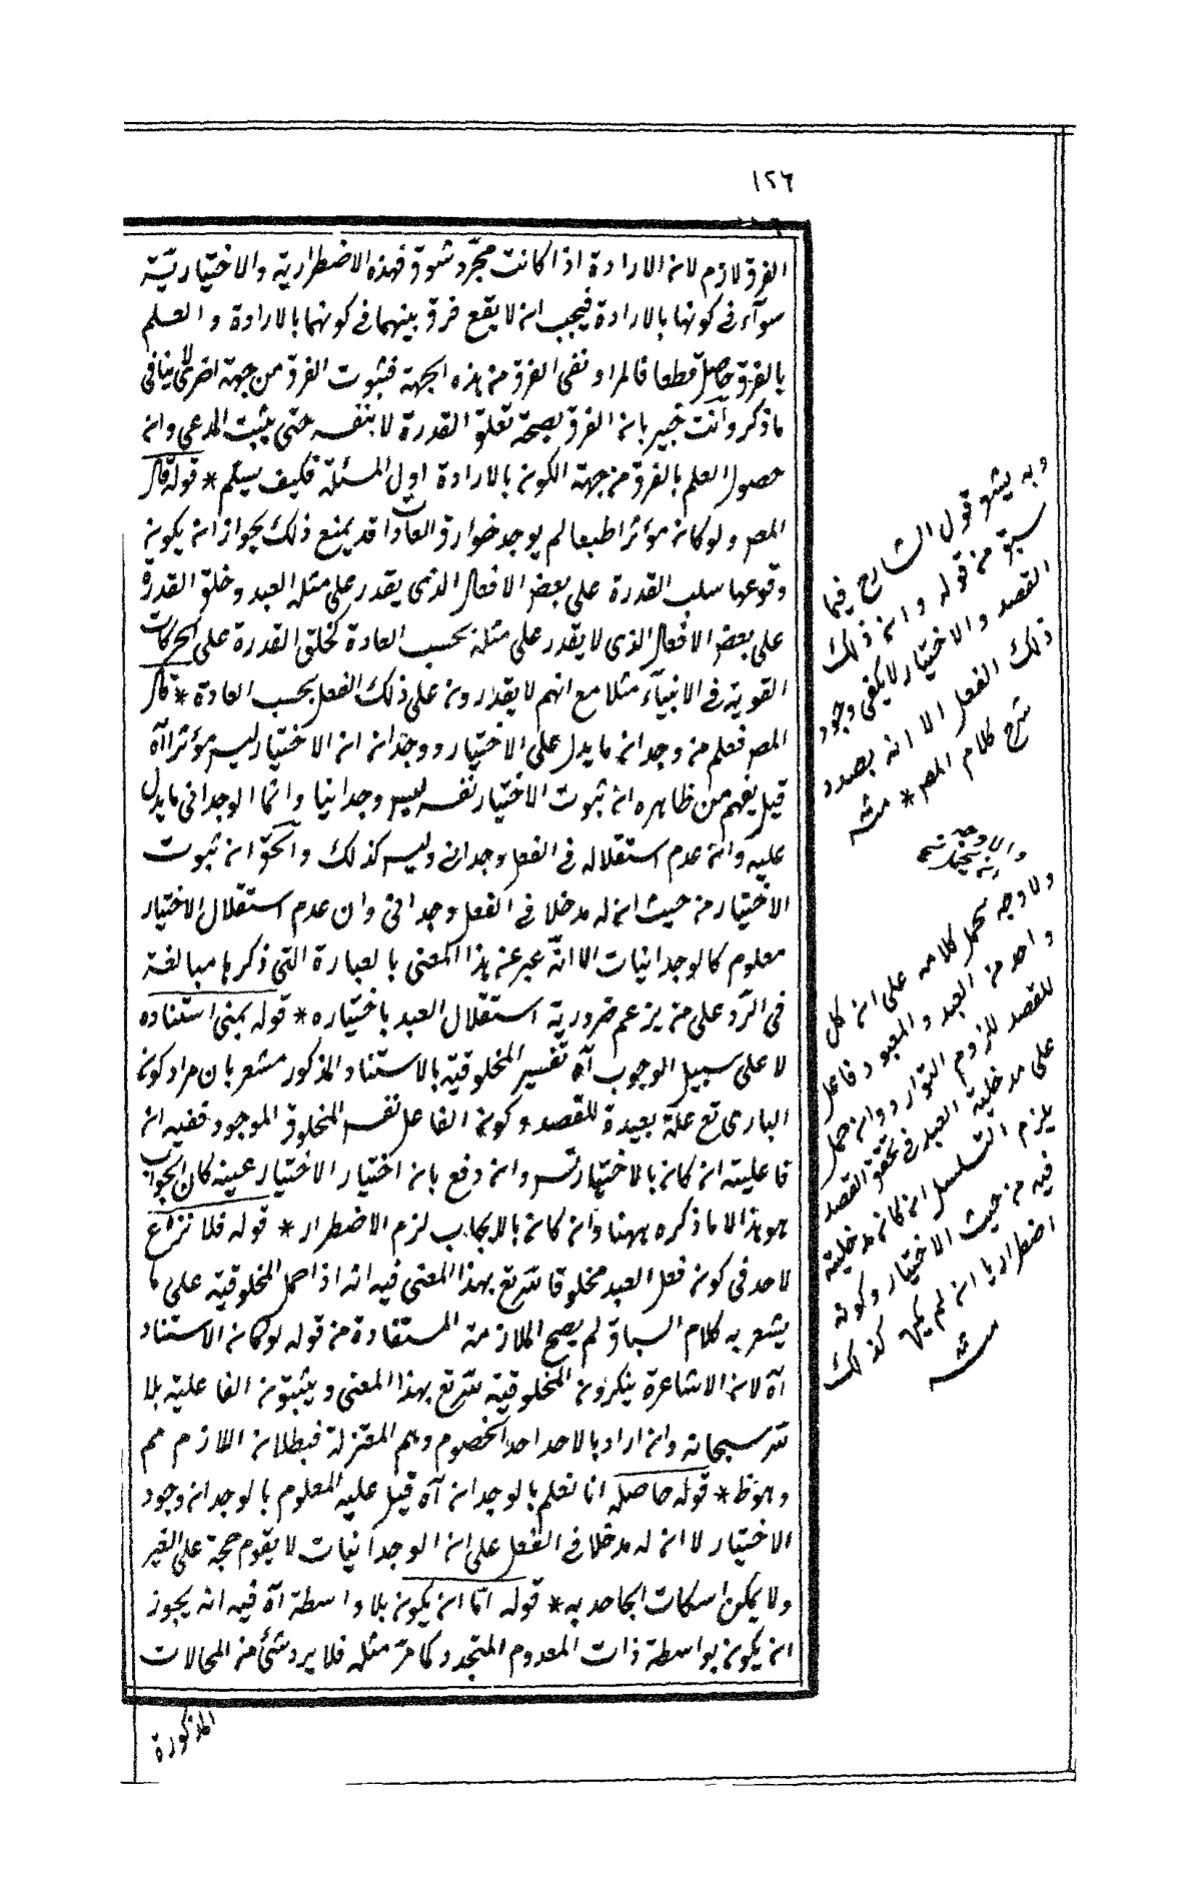 ١٢٦
الفرق لازم لان الارادة اذا كانت مجرّد شوق فهذه الاضطرارية والاختياريّة
سوآء فى كونها بالارادة فيجب ان لا يقع فرق بينهما فى كونهما بالارادة والعلم
بالفرق حاصل قطعا فالمراد نفى الفرق من هذه الجهة فثبوت الفرق من جهة اخرى لا ينافى
ما ذكر وانت خبير بان الفرق بصحة تعلق القدرة لا بنفسه حتى يثبت المدعى وان
حصول العلم بالفرق من جهة الكون بالارادة اول المسئلة فكيف يسلم * قوله قال
المص ولو كان مؤثرا طبعا لم يوجد خوارق العادات قد يمنع ذلك بجواز ان يكون
وقوعها سلب القدرة على بعض الافعال الذى يقدر على مثله العبد وخلق القدرة
على بعض الافعال الذى لا يقدر على مثله بحسب العادة كخلق القدرة على الحركات
القوية فى الانبيآء مثلا مع انهم لا يقدرون على ذلك الفعل بحسب العادة * قال
المص فعلم من وجدان ما يدل على الاختيار ووجدان ان الاختيار ليس مؤثرا آه
قيل يفهم من ظاهره ان ثبوت الاختيار نفسه ليس وجدانيا وانما الوجدانى ما يدل
عليه وان عدم استقلاله فى الفعل وجدانى وليس كذلك والحق ان ثبوت
الاختيار من حيث ان له مدخلا فى الفعل وجدانى وان عدم استقلال الاختيار
معلوم كالوجدانيات الا انّه عبر عن هذا المعنى بالعبارة التى ذكرها مبالغة
فى الرّد على من يزعم ضرورية استقلال العبد باختياره * قوله بمعنى استناده
لا على سبيل الوجوب آه تفسير المخلوقية بالاستناد المذكور مشعر بان مراد كون
البارى تع علة بعيدة للقصد وكون الفاعل نفس المخلوق الموجود ففيه ان
فاعليته ان كان بالاختيار تس وان دفع بان اختيار الاختيار عينه كان الجواب
هو هذا لا ما ذكره ههنا وان كان بالايجاب لزم الاضطرار * قوله فلا نزاع
لاحد فى كون فعل العبد مخلوقا لله تع بهذا المعنى فيه انه اذا حمل المخلوقية على ما
يشعر به كلام السباق لم يصح الملازمة المستفادة من قوله لو كان الاستناد
آه لان الاشاعرة ينكرون المخلوقية لله تع بهذا المعنى ويثبتون الفاعلية بلا
لله سبحانه وان اراد بالاحد احد الخصوم وهم المعتزلة فبطلان اللازم مم
وهو ظ * قوله حاصله انا نعلم بالوجدان آه قيل عليه المعلوم بالوجدان وجود
الاختيار لا ان له مدخلا فى الفعل على ان الوجدانيات لا يقوم حجة على الغير
ولا يمكن اسكات الجاحد به * قوله امّا ان يكون بلا واسطة آه فيه انه يجوز
ان يكون بواسطة ذات المعدوم المتجدد كما مرّ مثله فلا يرد شئ من المحالات
المذكورة
وبه يشعر قول الشارح فيما
سبق من قوله وان ذلك
القصد والاختيار لا يكفى وجود
ذلك الفعل الا انه بصدد
شرح كلام المص * منه
ولا وجه بحمل كلامه على ان كل
واحد من العبد والمعبود فاعل
للقصد للزوم التوارد وان حمل
على مدخلية العبد فى تحقق القصد
يلزم التسلسل ان كان مدخليته
فيه من حيث الاختيار وكونه
اضطراريا ان لم يكن كذلك
منه